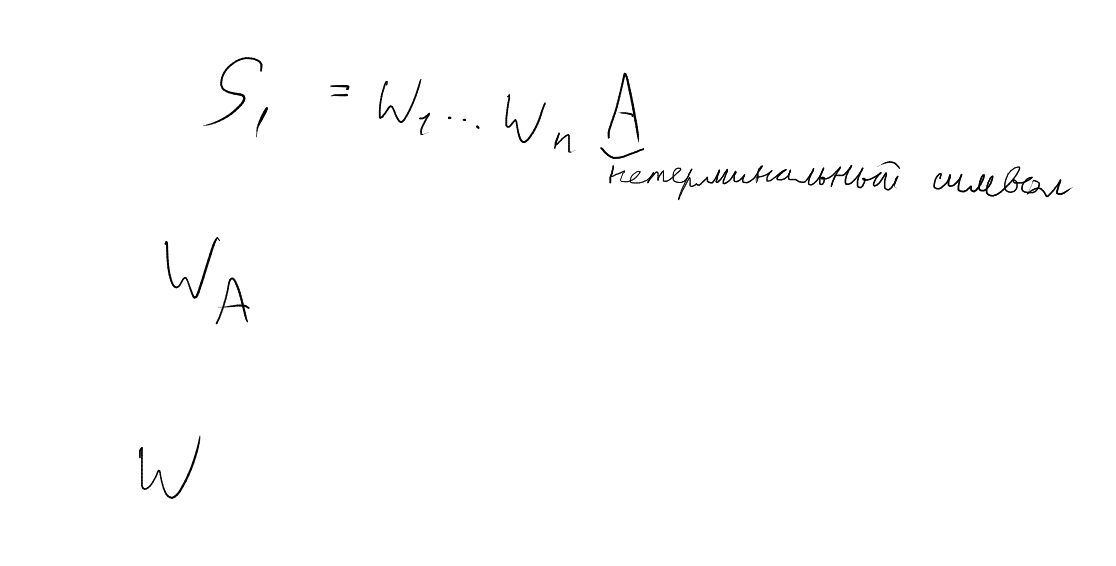 S₁ = W₁ ... Wₙ A
нетерминальный символ
W_A
W